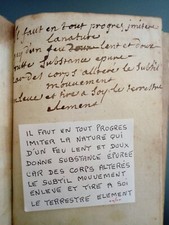 il faut en tout progres imiter
la nature
qui d'un feu doux lent et doux
donne substance epuree
car des corps alteres le subtil
mouvement
enleve et tire a soy le terrestre
element
IL FAUT EN TOUT PROGRES
IMITER LA NATURE QUI
D'UN FEU LENT ET DOUX
DONNE SUBSTANCE EPUREE
CAR DES CORPS ALTERES
LE SUBTYL MOUVEMENT
ENLEVE ET TIRE A SOI
LE TERRESTRE ELEMENT